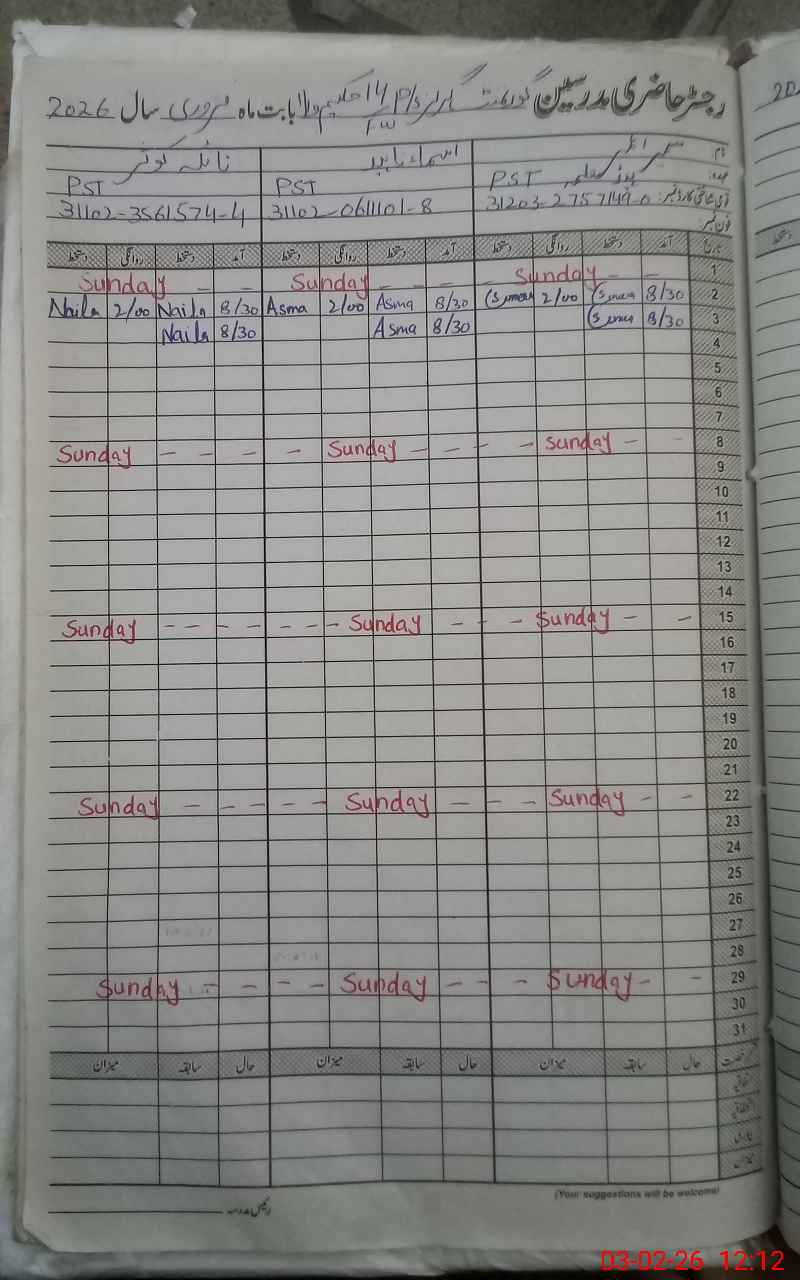 رجسٹر حاضری مدرسین گورنمنٹ گرلز P/S 14 حکیم والا بابت ماہ فروری سال 2026
نام سمیرا اسماء ناہید نائلہ کوثر
عہدہ ہیڈ معلمہ PST PST PST
قومی شناختی کارڈ نمبر: 31203-2757149-0 31102-0611101-8 31102-3561574-4
فون نمبر:
تاریخ آمد دستخط روانگی دستخط آمد دستخط روانگی دستخط آمد دستخط روانگی دستخط
1 Sunday - - Sunday - - - - Sunday - -
2 8/30 2/00 8/30 Asma 2/00 Asma 8/30 Naila 2/00 Naila
3 8/30 8/30 Asma 8/30 Naila
4
5
6
7
8 Sunday - - - - Sunday - - - - Sunday - -
9
10
11
12
13
14
15 Sunday - - - - - - - Sunday - - - Sunday - -
16
17
18
19
20
21
22 Sunday - - - - - Sunday - - - Sunday - -
23
24
25
26
27
28
29 Sunday - - - - Sunday - - - Sunday - -
30
31
حال سابقہ میزان حال سابقہ میزان حال سابقہ میزان
اتفاقیہ
میزان
رئیس مدرسہ
(Your suggestions will be welcome)
03-02-26 12:12